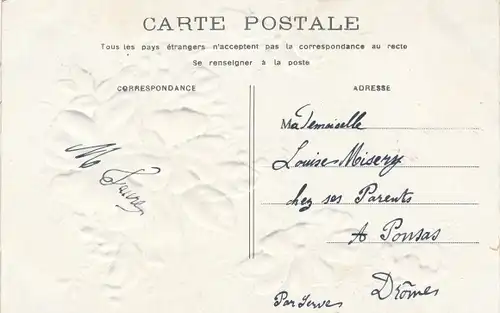 CARTE POSTALE
Tous les pays étrangers n'acceptent pas la correspondance au recto
Se renseigner à la poste
CORRESPONDANCE
M Faure
ADRESSE
Mademoiselle
Louise Misery
chez ses Parents
A Ponsas
Drôme
Par Serves